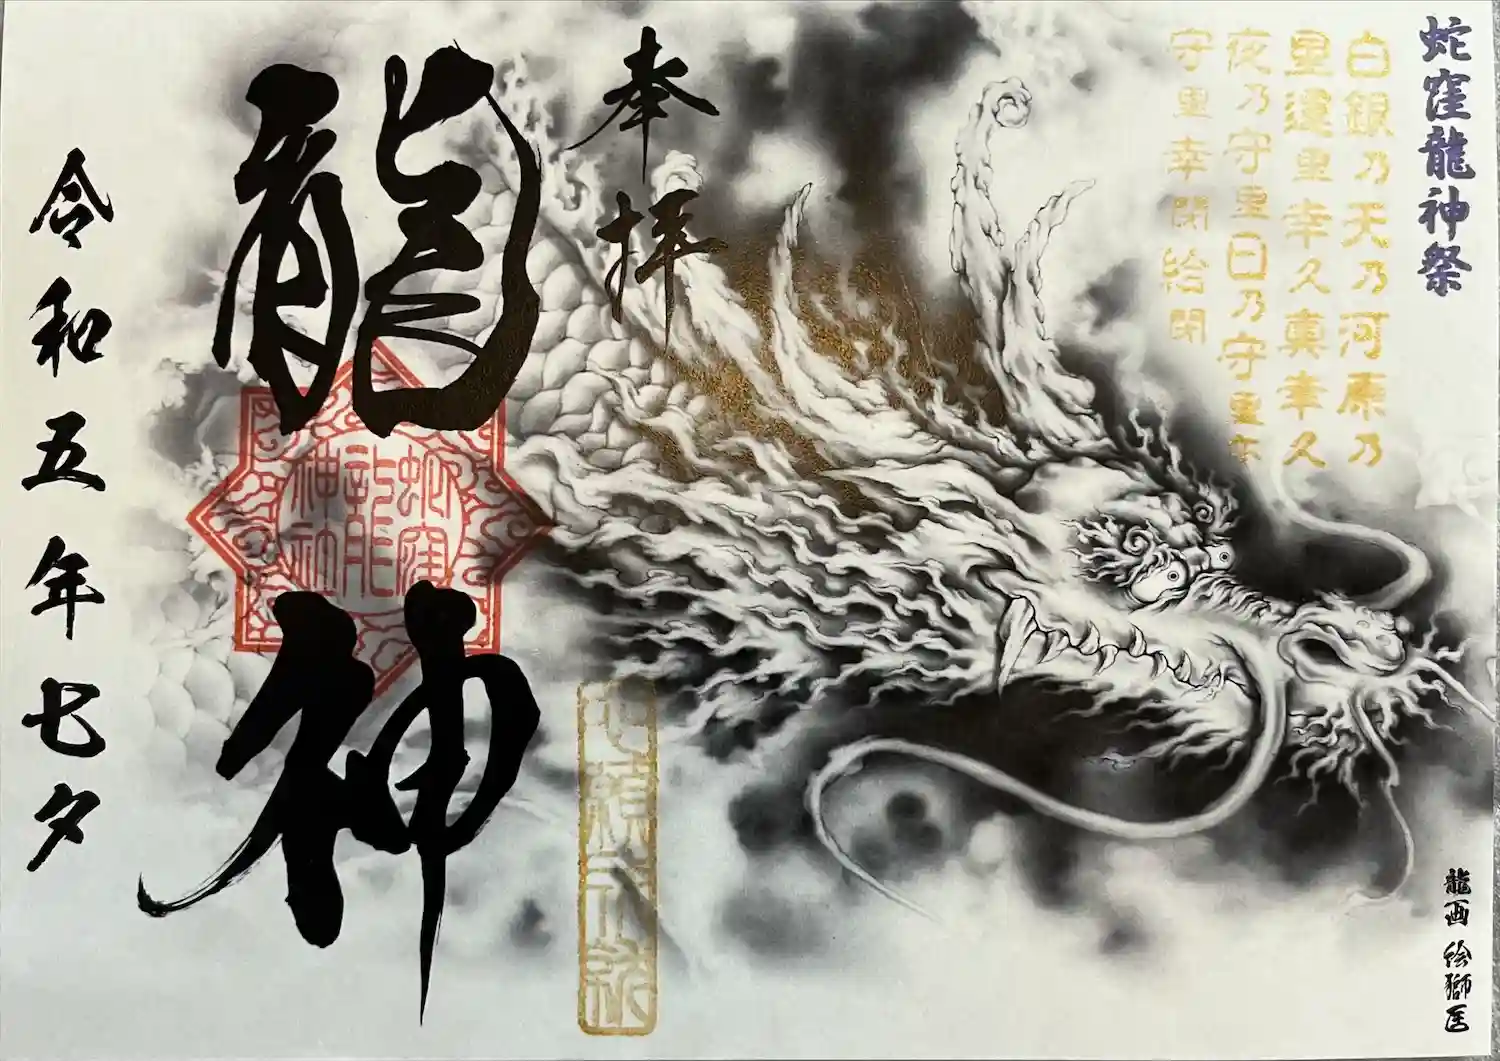 蛇窪龍神祭
白銀乃天乃河原乃
幸久真幸久
夜乃守里日乃守里尓
守里幸閉給閉
奉拝
龍神
蛇窪
龍
神社
令和五年七夕
龍画 絵獅